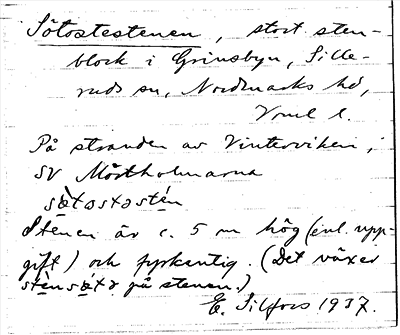 Sötostestenen, stort sten-
block i Grinsbyn, Sille-
ruds sn, Nordmarks hd,
Vrml l.
På stranden av Vinterviken,
SV Mörtholmarna
sǝ̀tǝstǝstén
Stenen är c. 5 m hög (enl. upp-
gift) och fyrkantig. (Det växer
stènsǿtǝ på stenen.)
E. Silfors 1937.